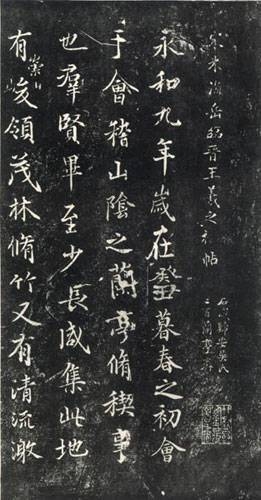 宋米海岳臨晋王羲之禊帖
歸安吳氏
二百蘭亭
永和九年歲在癸丑暮春之初會
于會稽山陰之蘭亭脩稧事
也羣賢畢至少長咸集此地
有崇山峻領茂林脩竹又有清流激